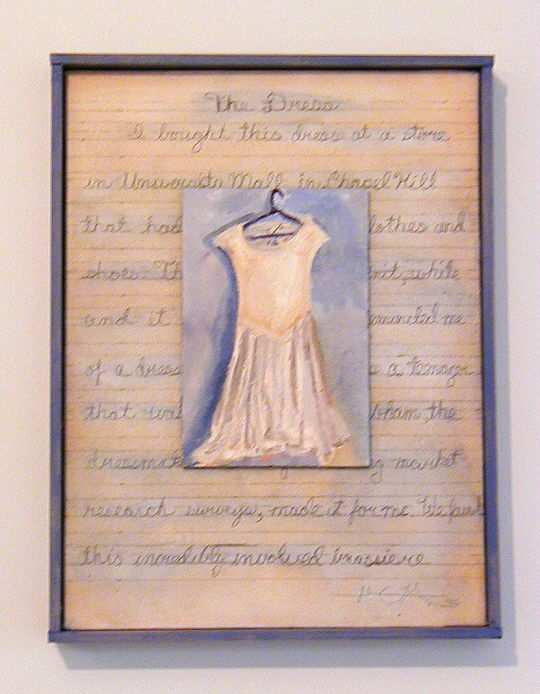 The Dress
I bought this dress at a store
in University Mall in Chapel Hill
that had clothes and
shoes. Th knit, white
and it reminded me
of a dress a teenager
that
dressmake market
research surveys, made it for me. We
this incredibly involved brassiere